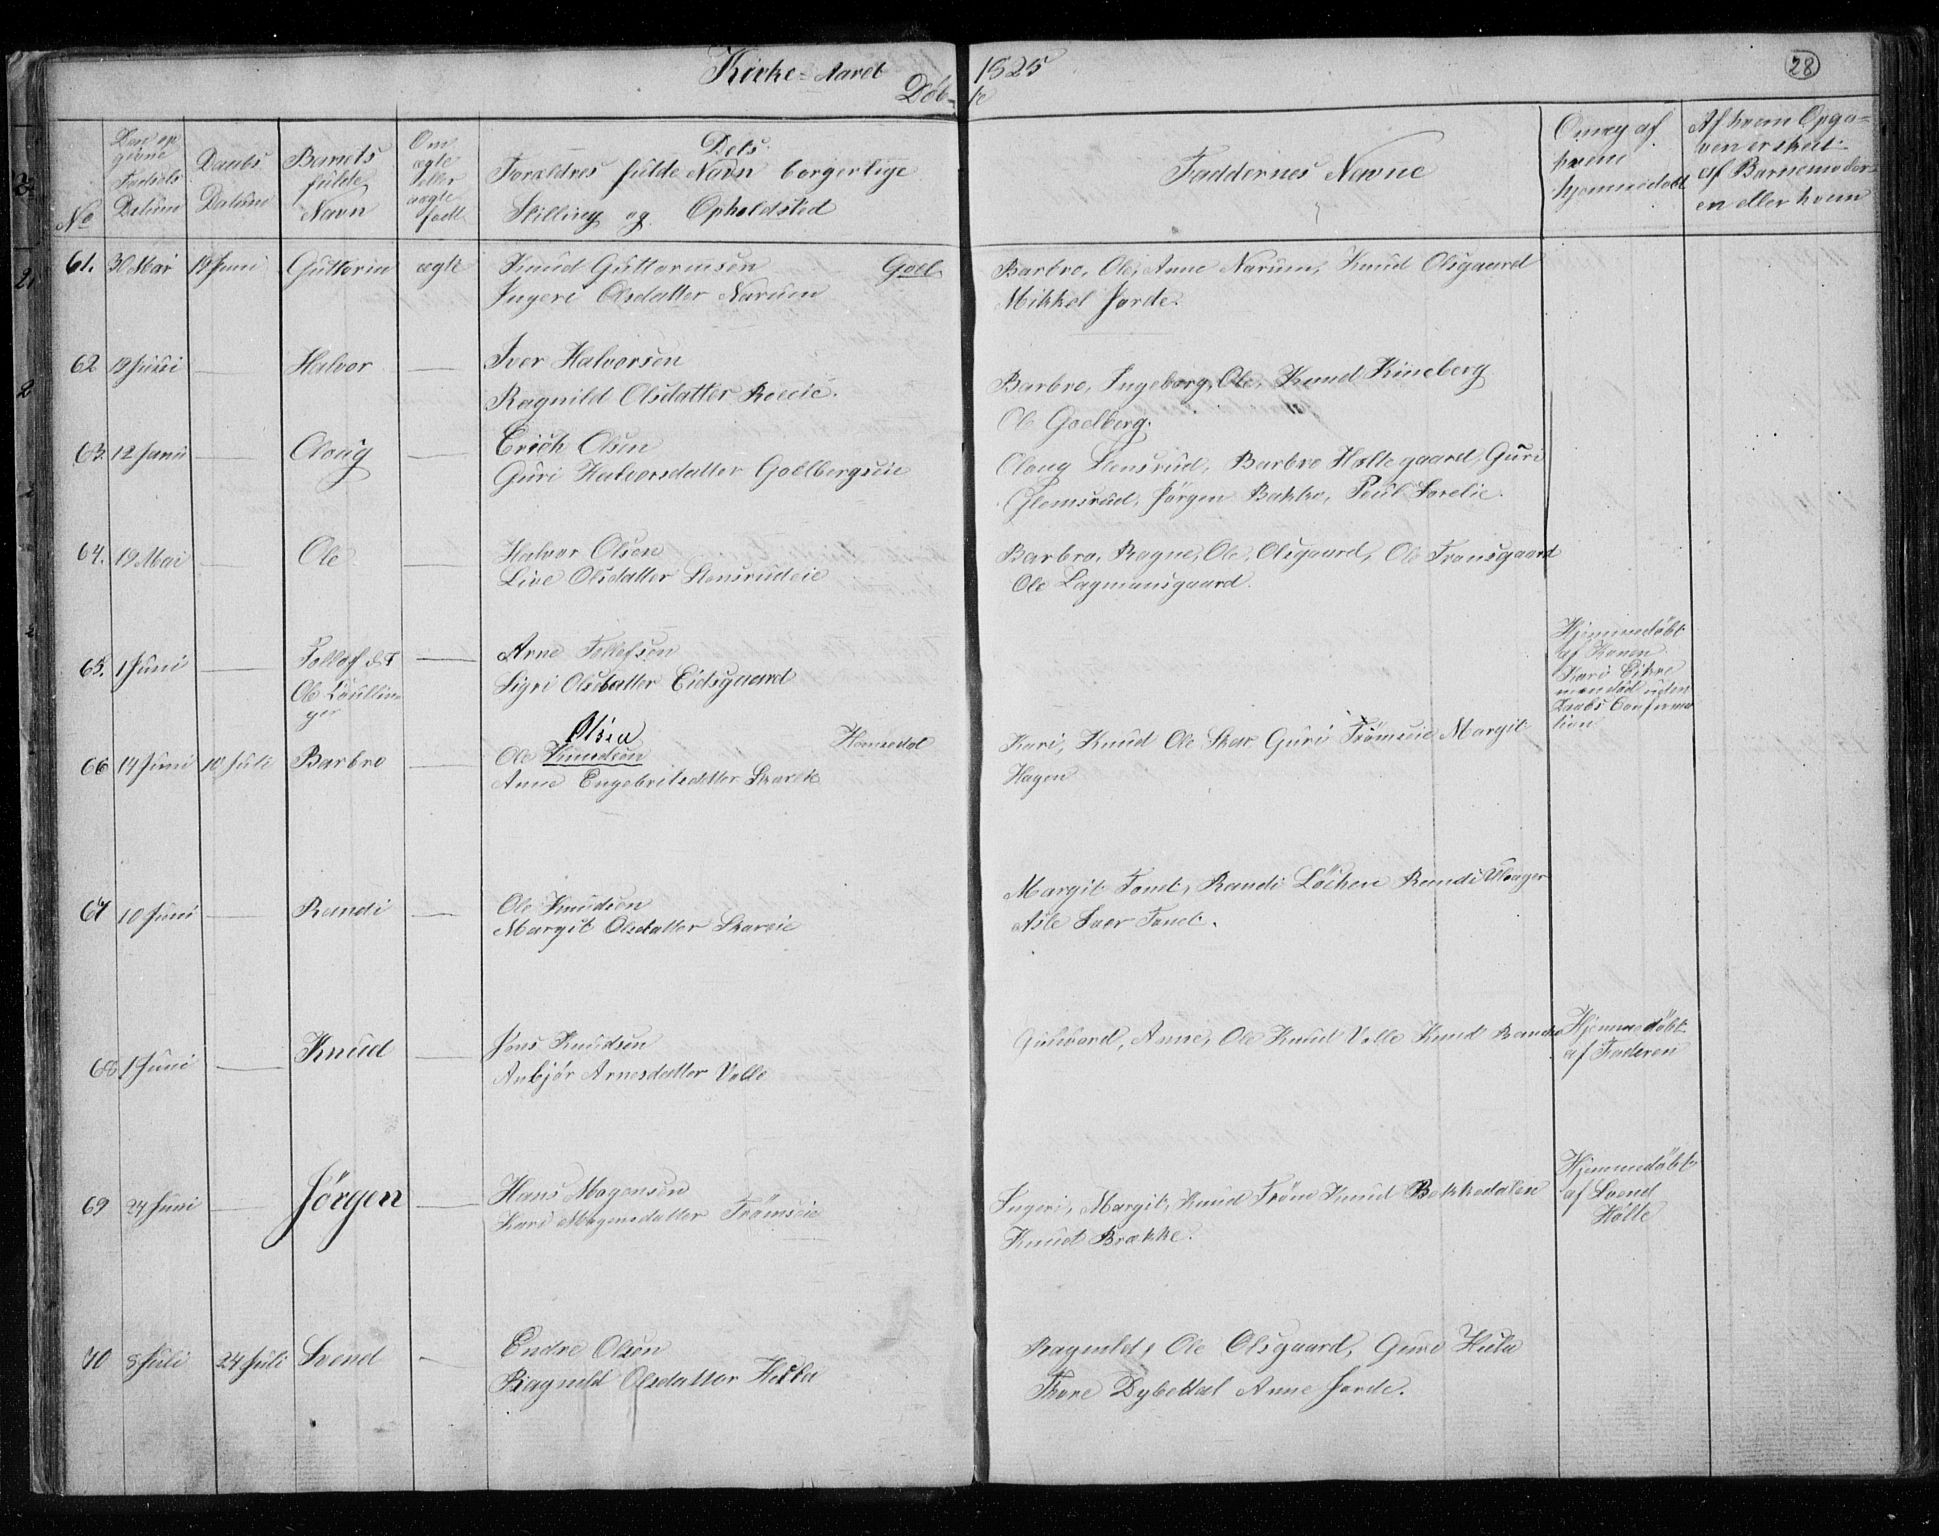 Kirke-Aaret 1825
28
Döb-te
No
Den op
givne
Fødsels
Datum
Daabs
Datum
Barnets
fulde
Navn
Om
ægte
eller
uægte
født
Dets
Foraldres fulde Navn borgerlige
Stilling og Opholdsted
Faddernes Navne
Om og af
hvem
hjemmedøbt
Af hvem Opga-
ven er skeet:
af Barnemoder-
en eller hvem
61. 30 Mai 12 Juni Guttorm ægte Knud Guttormsen Goel.
Ingeri Olsdatter Narum
Barbro, Ole, Anne Narum, Knud Olsgaard
Mikkel Jorde.
62 12 Juni Halvor Iver Halvorsen
Ragnild Olsdatter
Barbro, Ingeborg, Ole, Knud Kineberg
Ole Goelberg.
63. 12 Juni Oloug Erich Olsen
Guri Halvorsdatter Goelbergseie
Oloug Stensrud, Barbro Holtegaard, Guri
Glomsrud, Jörgen Bakke, Poul Lorelie.
64. 19 Mai Ole Halvor Olsen
Live Olsdatter Stensrudeie
Barbro, Ragne, Ole, Olsgaard, Ole Tronsgaard
Ole Lagmansgaard.
65. 1 Juni Tollef
Ole
Arne Tollefsen
Sigri Olsdatter Eidsgaard
Hjemmedöbt
af Konen
Kari Eikre
men död uden
Daabs Confirma
tion
66 14 Juni 10 Juli Barbro Olsen Hemsedal
Ole Knudsen
Anne Engebritsdatter Skareie
Kari, Knud Ole Skar, Guri Trömseie Margit
Hagen
67 10 Juni Randi Ole Knudsen
Margit Olsdatter Skareie
Margit Tondt, Randi Löken Randi Ulsager
Asle Iver Tondt.
68 1 Juni Knud Jens Knudsen
Anbjör Arnesdatter Volle
Gulbord, Anne, Ole Knud Volle Knud
Hjemmedöbt
af Faderen
69 24 Juni Jörgen Hans Mogensen
Kari Mogensdatter Trömseie
Ingeri, Margit, Knud Tröm Knud Bekkedalen
Knud Brække.
Hjemmedöbt
af Svend
Holte
70 8 Juli 24 Juli Svend Endre Olsen
Ragnild Olsdatter Hesla
Ragnild, Ole Olsgaard, Guro Hula
Thore Dybedal Anne Jorde.